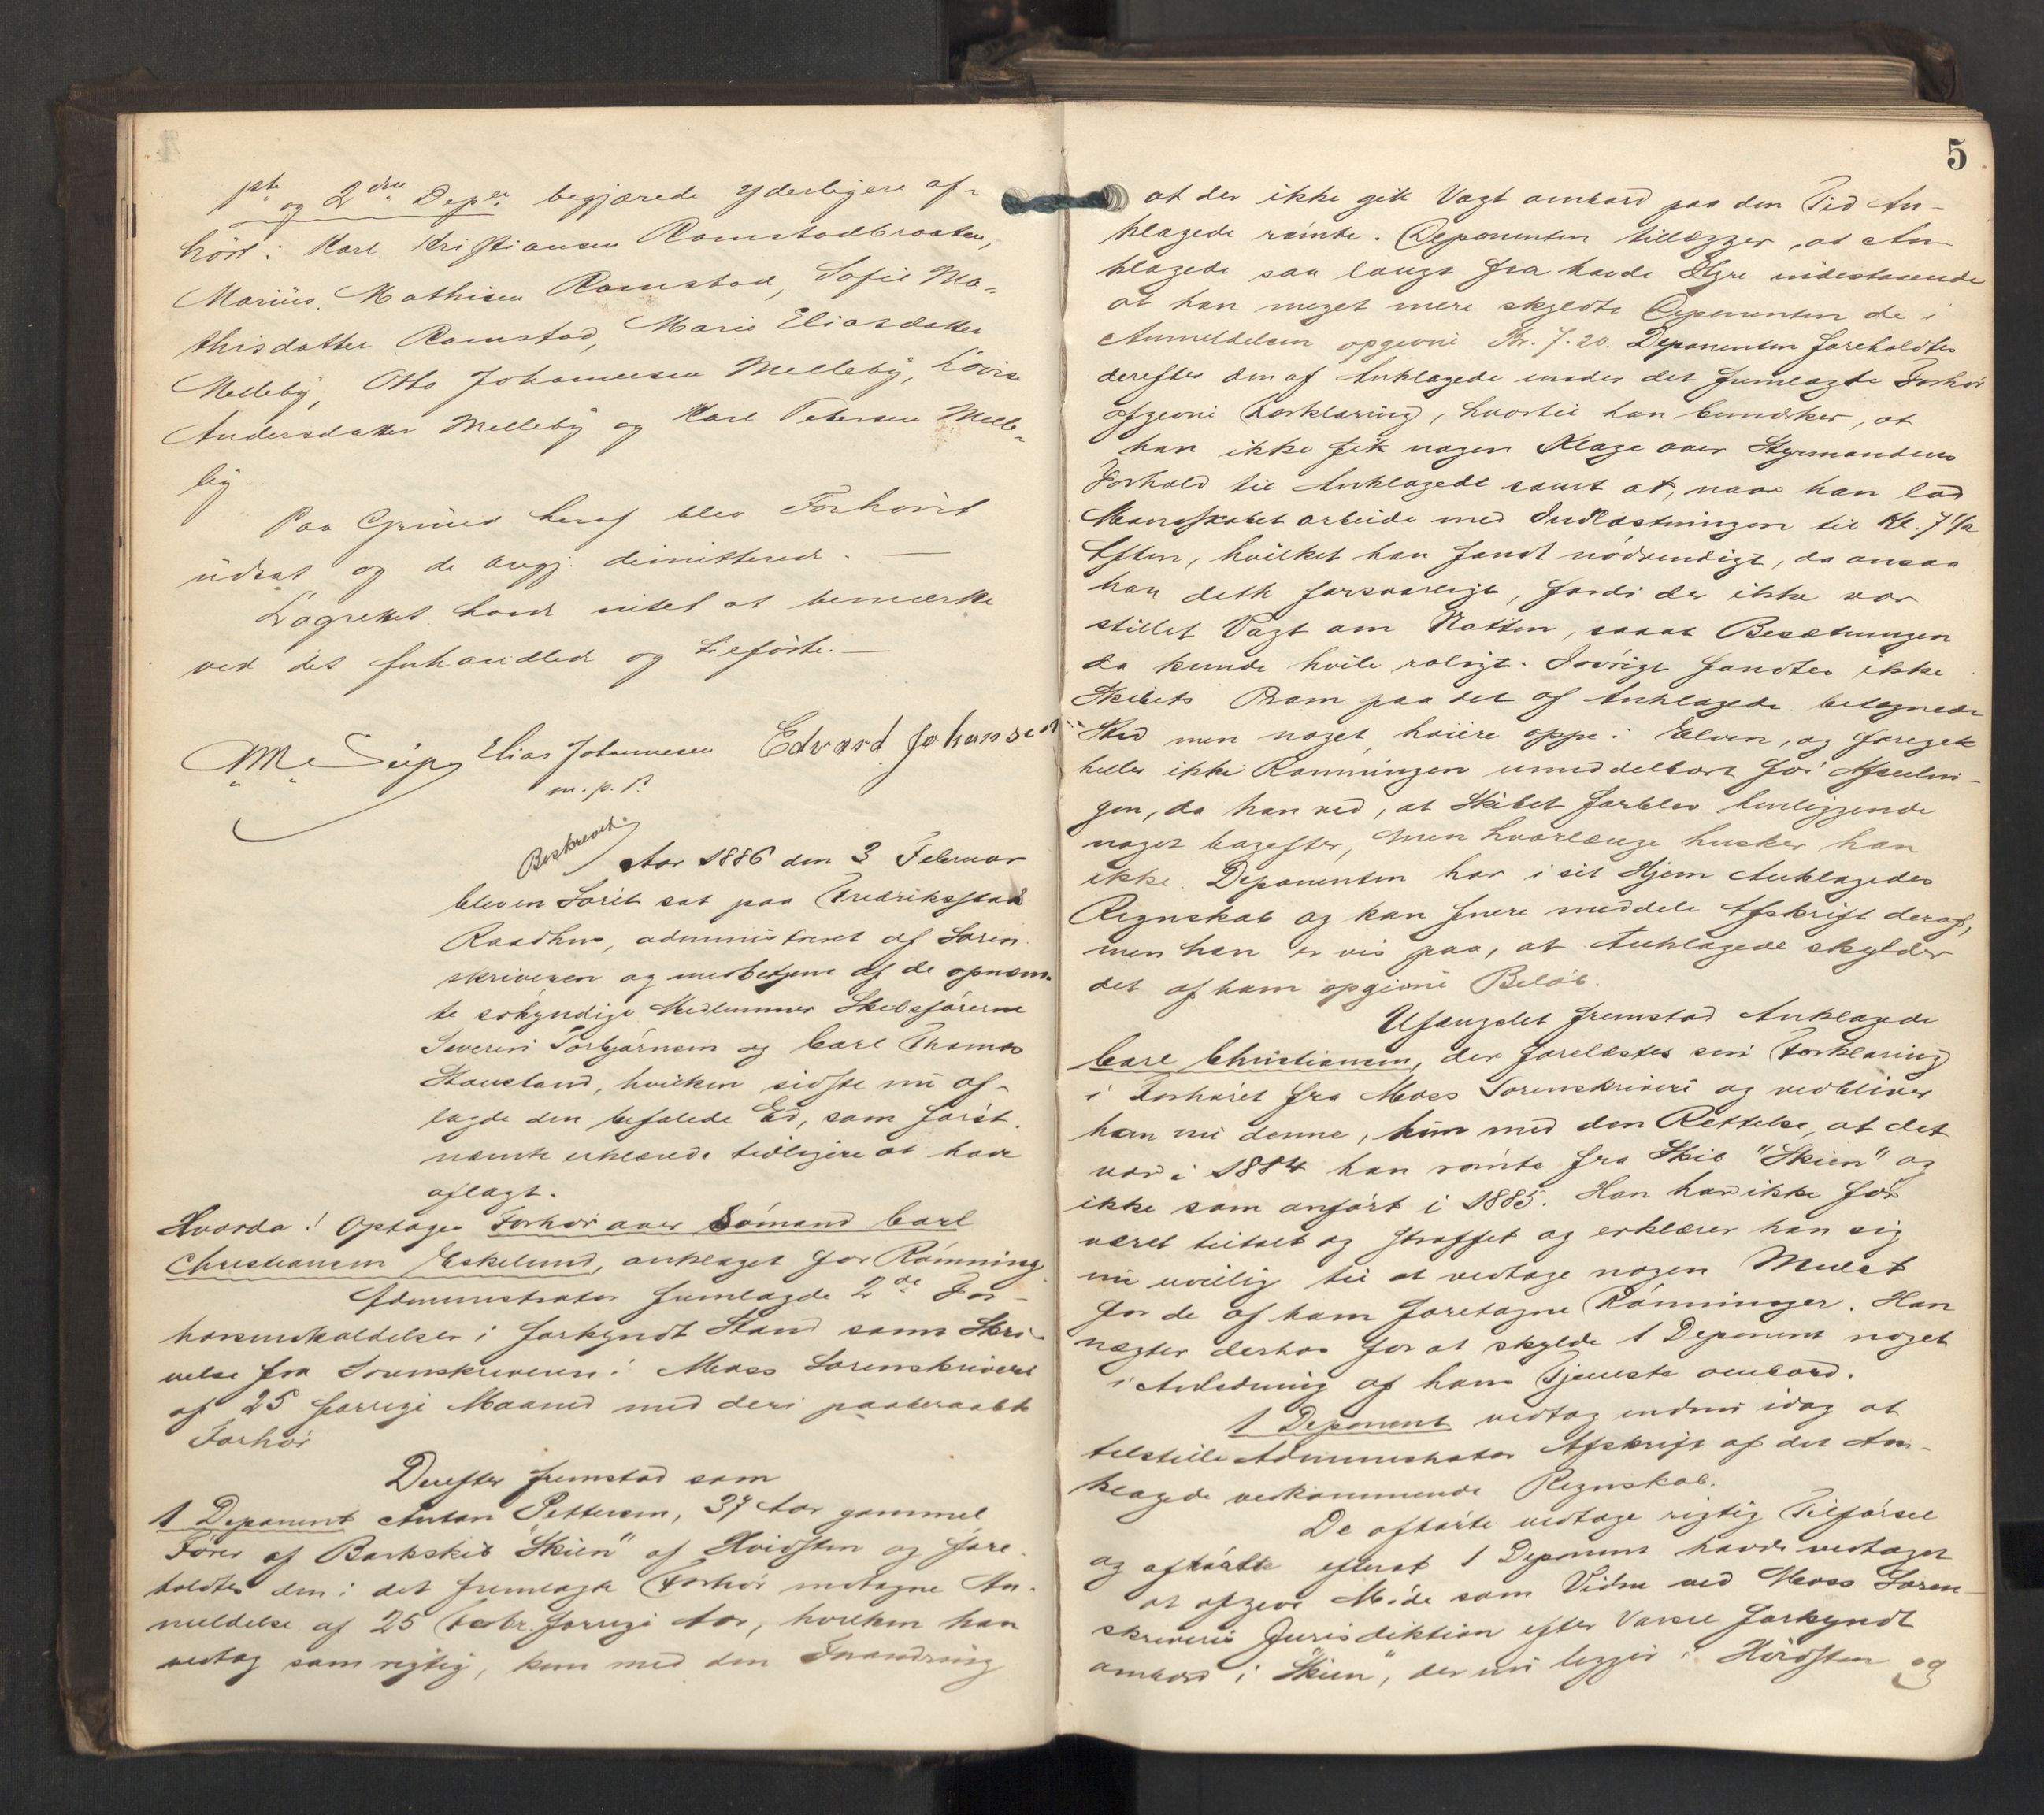 1ste og 2den Depn. begjærede yderligere af-
hört: Karl Kristiansen Ramstadbraaten,
Marius Mathisen Ramstad, Sofie Ma-
thisdatter Ramstad, Marie Eliasdatter
Melleby, Otto Johannesen Melleby, Lovise
Andersdatter Melleby og Karl Petersen Melle-
by.
Paa Grund heraf blev Forhöret
udsat og de angj. dimitteret. —
Lagrettet havde intet at bemærke
ved det forhandlede og tilförte. —
Elias Johannesen Edvard Johansen
m. p. P.
Beskrevet.
Aar 1886 den 3 Februar
blev en Søret sat paa Fredriksstad
Raadhus, administreret af Soren-
skriveren og medbetjent af de opnævn-
te sökyndige Medlemmer Skibsförerne
Severin Torbjörnsen og Carl Thomas
Stousland, hvilken sidste nu af-
lagde den befalede Ed, som först-
nævnte erklærede tidligere at have
aflagt.
Hvorda! Optoges Forhör over Sömand Carl
Christiansen Eskelund, anklaget for Römning.
Administrator fremlagde 2de For-
hörsindkaldelser i forkyndt Stand samt Skri-
velse fra Sorenskriveren i Moss Sorenskriveri
af 25 forrige Maaned med deri paaberaabt
Forhör
Derefter fremstod som
1 Deponent Anton Pettersen, 37 Aar gammel
Förer af Barkskib "Skien" af Hvidsten og fore-
holdtes den i det fremlagte Forhör indtagne An-
meldelse af 25 forrige Aar, hvilken han
vedtog som rigtig, kun med den Forandring
5
at der ikke gik Vagt ombord paa den Tid An-
klagede römte. Deponenten tillægger, at An-
klagede saa langt fra havde Hyre indestaaende
at han meget mere skyldte Deponenten de i
Anmeldelsen opgivne Kr. 7.20. Deponenten foreholdtes
derefter den af Anklagede under det fremlagte Forhör
afgivne Forklaring, hvortil han bemærker, at
han ikke fik nogen Klage over Styrmandens
Forhold til Anklagede samt at, naar han lod
Mandskabet arbeide med Indlastningen til Kl. 7 1/2
Aften, hvilket han fandt nödvendigt, da ansaa
han dette forsvarligt, fordi der ikke var
stillet Vagt om Natten, saaat Besætningen
da kunde hvile roligt. Iövrigt fandtes ikke
Skibets Pram paa det af Anklagede betegnede
Sted men noget höiere oppe i Elven, og foregik
heller ikke Rømningen umiddelbart för Afseilin-
gen, da han ved, at Skibet forblev henliggende
noget bagefter, men hvorlænge husker han
ikke. Deponenten har i sit Hjem Anklagedes
Regnskab og kan senere meddele Afskrift deraf,
men han er vis paa, at Anklagede skylder
det af ham opgivne Belöb.
Ufængslet fremstod Anklagede
Carl Christiansen, der forelæstes sin Forklaring
i Forhöret fra Moss Sorenskriveri og vedbliver
han nu denne, kun med den Rettelse, at det
var i 1884 han römte fra Skib "Skien" og
ikke som anfört i 1885. Han har ikke för
været tiltalt og straffet og erklærer han sig
nu uvillig til at vedtage nogen Mulct
for de af ham foretagne Römninger. Han
nægter derhos for at skylde 1 Deponent noget
i Anledning af hans Tjeneste ombord.
1 Deponent vedtog endnu idag at
tilstille Administrator Afskrift af det An-
klagede vedkommende Regnskab.
De afhörte vedtage rigtig Tilförsel
og efterat 1 Deponent havde vedtaget
at afgive Möde som Vidne ved Moss Soren-
skriveris Jurisdiktion efter Varsel forkyndt
ombord i "Skien", der nu ligger i Hvidsten og